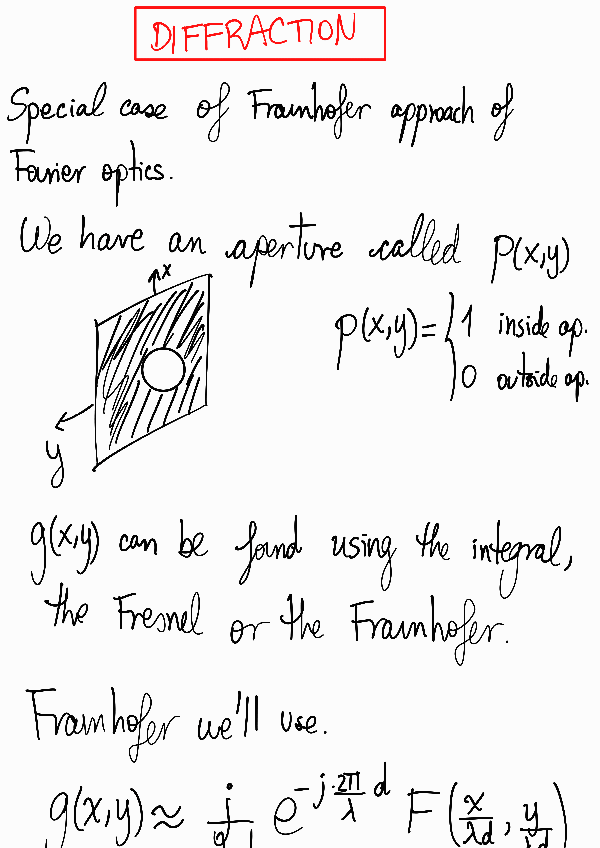 DIFFRACTION
Special case of Fraunhofer approach of
Fourier optics.
We have an aperture called p(x,y)
x
p(x,y) = { 1 inside ap.
0 outside ap.
y
g(x,y) can be found using the integral,
the Fresnel or the Fraunhofer.
Fraunhofer we'll use.
g(x,y) ≈ j e^{-j·2π/λ d} F(x/λd, y/λd)